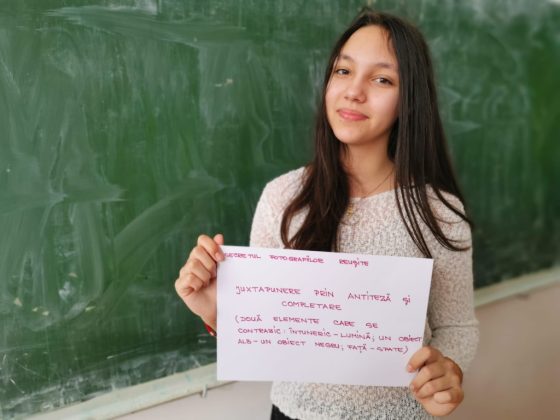 SECRETUL FOTOGRAFIILOR REUȘITE
JUXTAPUNERE PRIN ANTITEZĂ ȘI
COMPLETARE
(DOUĂ ELEMENTE CARE SE
CONTRAZIC: ÎNTUNERIC – LUMINĂ; UN OBIECT
ALB – UN OBIECT NEGRU; FAȚĂ – SPATE)